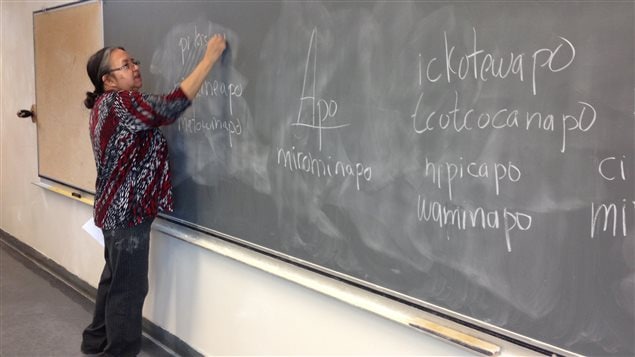 meromnapo
Apo
mirominapo
ickotewapo
tcotcocanapo
nipicapo
waminapo
ci
mi